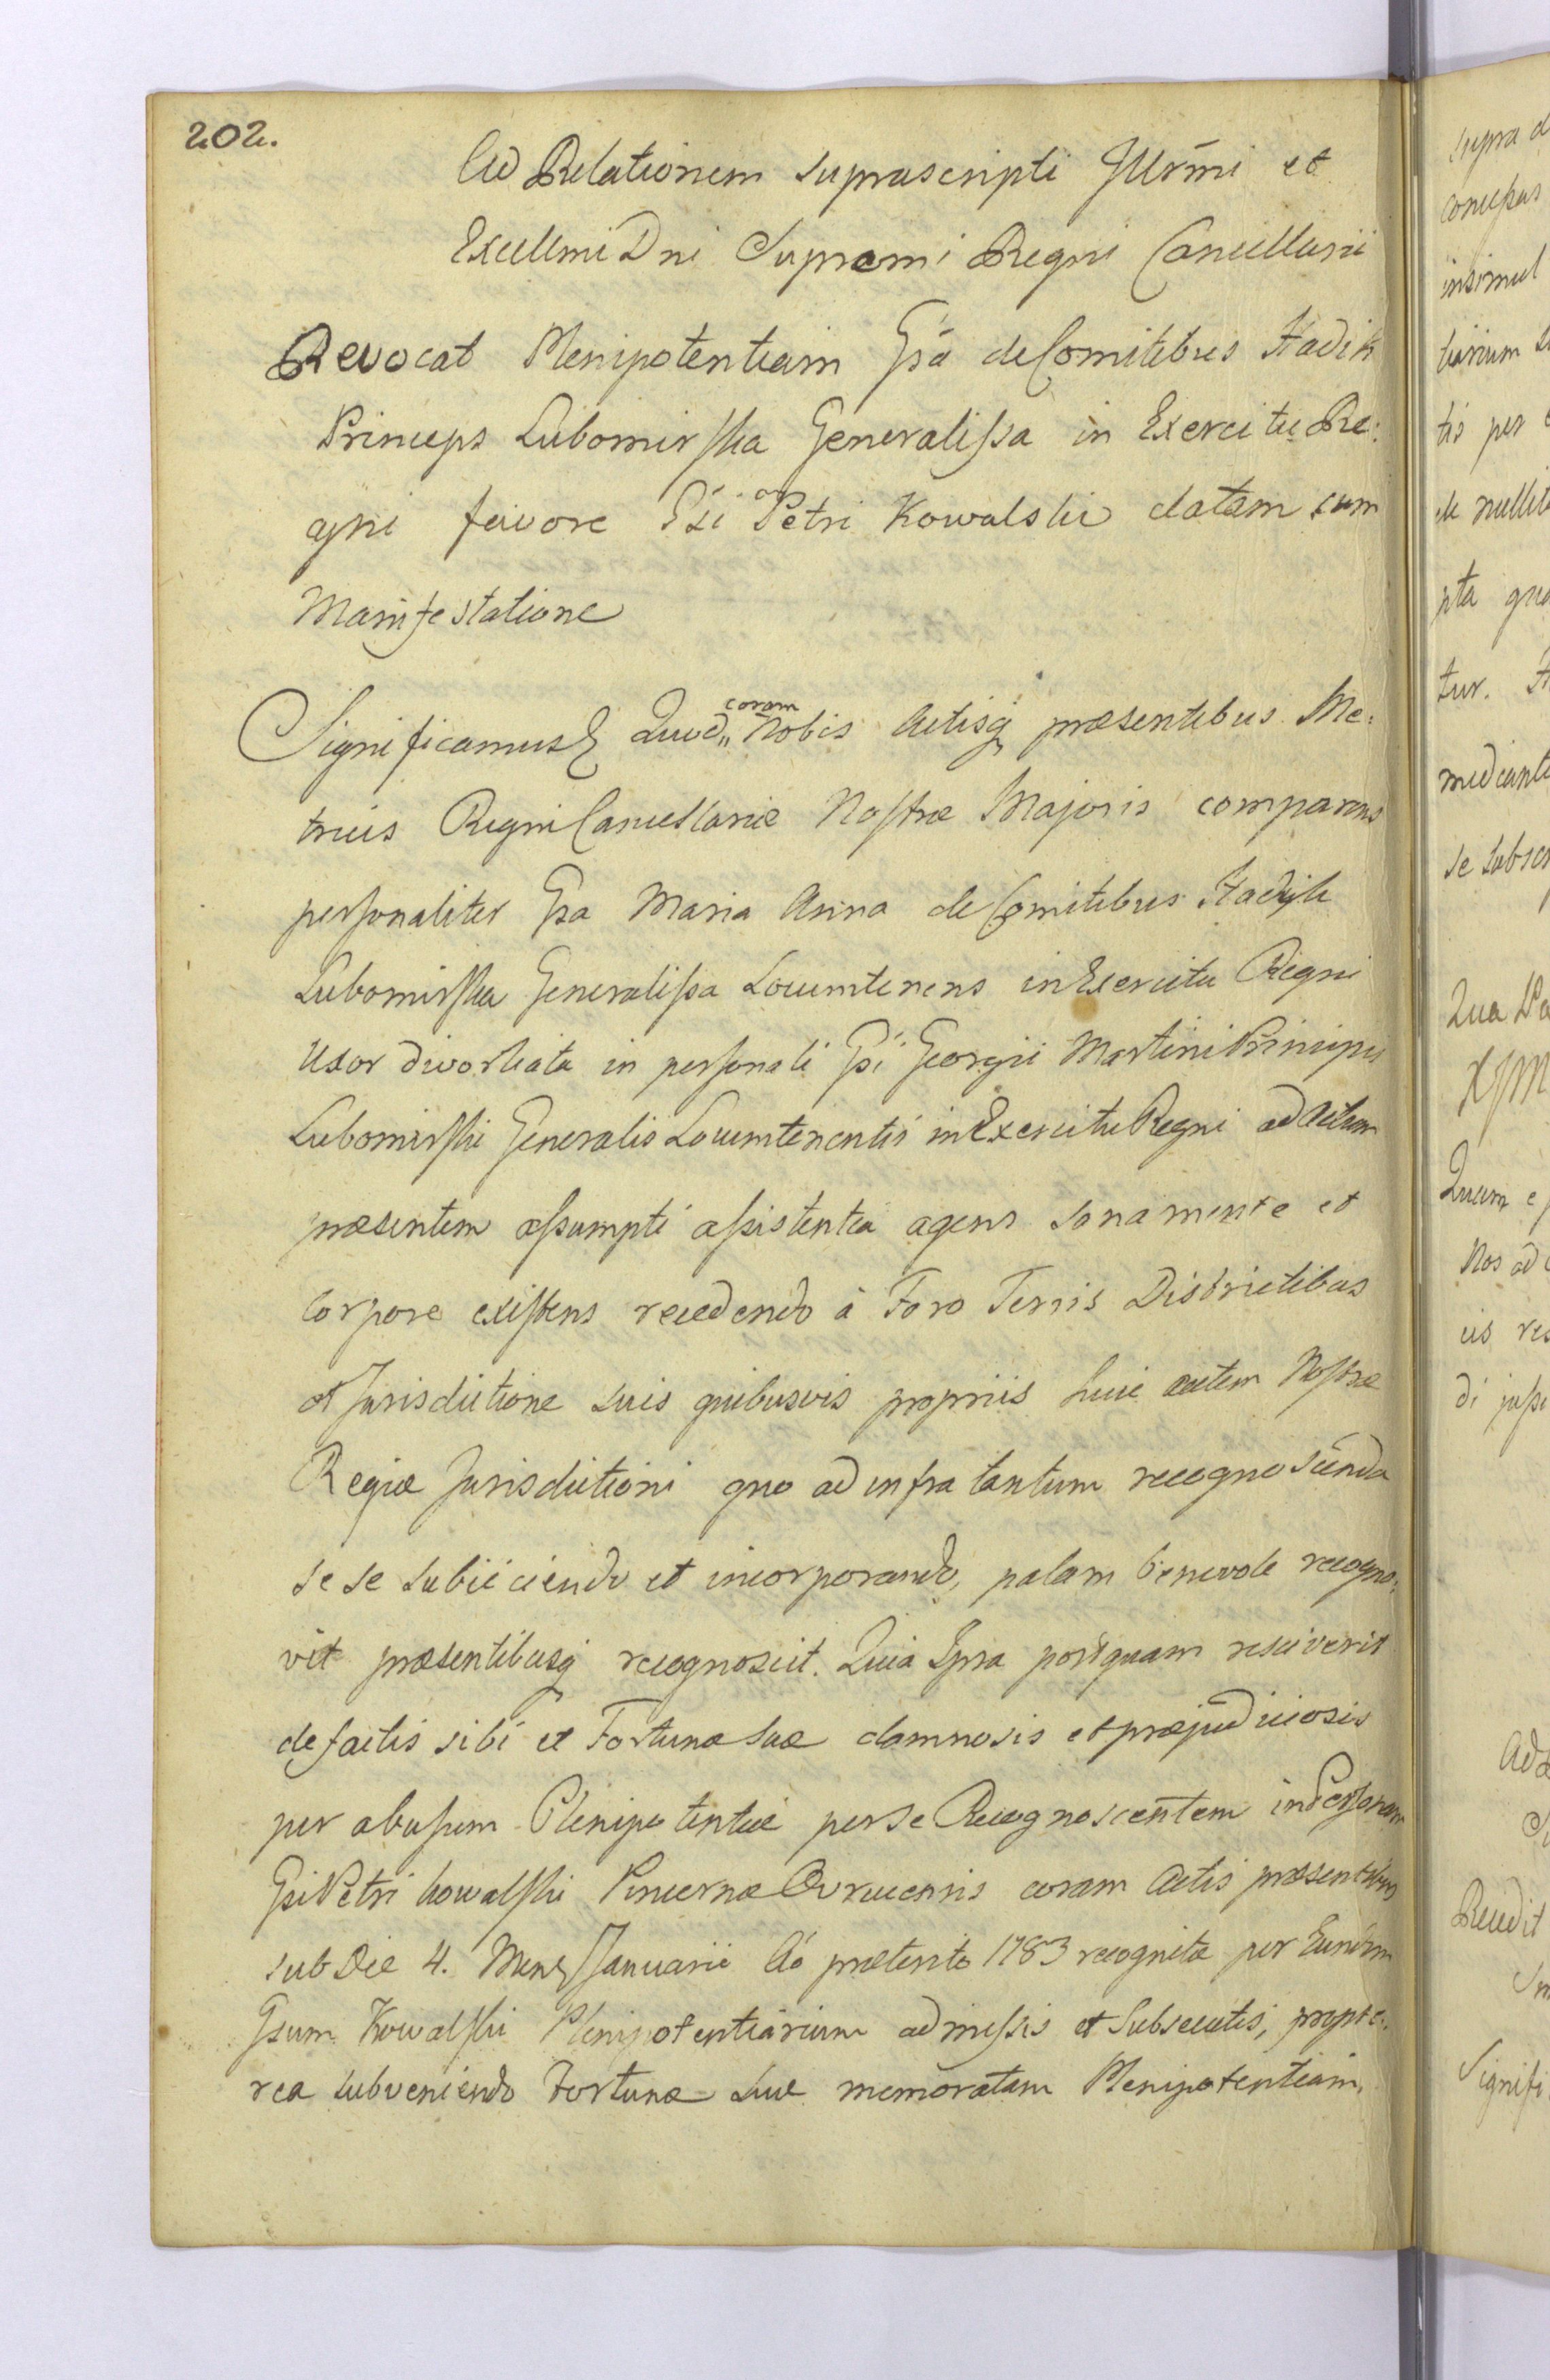 202.
Ad Relationem suprascripti Illrmi et
Excellmi Dni Supremi Regni Cancellarii
Revocat Plenipotentiam Gsa de Comitibus Hadik
Princeps Lubomirska Generalissa in Exercitu Re:
gni favore Gsi Petri Kowalski datam cum
Manifestatione
Significamus Quod coram Nobis Actisq praesentibus Me:
tricis Regni Cancellariae Nostrae Majoris comparens
personaliter Gsa Maria Anna de Comitibus Hadyk
Lubomirska Generalissa Locumtenens in Exercitu Regni
Uxor divortiata in personali Gsi Georgii Martini Principis
Lubomirski Generalis Locumtenentis in Exercitu Regni ad Actum
praesentem assumpti assistentia agens sana mente et
Corpore existens recedendo à Foro Terris Districtibus
et Jurisdictione suis quibusvis propriis huic autem Nostrae
Regiae Jurisdictioni quo ad infra tantum recognoscenda
se se subiiciendo et incorporando, palam benevole recogno:
vit praesentibusq recognoscit. Quia Ipsa postquam resciverit
de factis sibi et Fortunae suae damnosis et praejudiciosis
per abusum Plenipotentiae per se Recognoscentem in Personam
Gsi Petri Kowalski Pincernae Ovrucensis coram Actis praesentibus
sub Die 4. Mens Januarii Ao praeterito 1783 recognitae per Eundm
Gsum Kowalski Plenipotentiarium admissis et Subsecutis, propte:
rea subveniendo Fortunae suae memoratam Plenipotentiam,